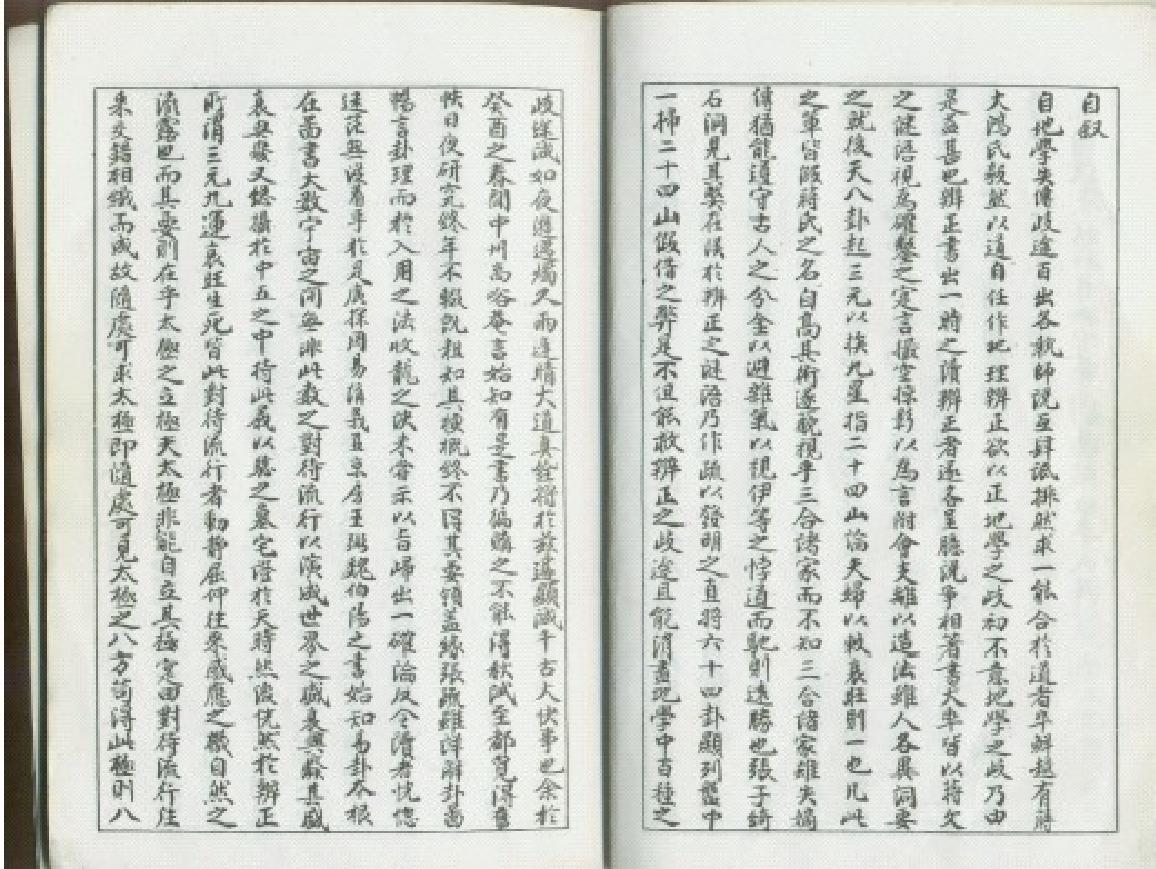 自叙
自地學失傳歧途百出各執師說互肆詆排然求一能合於道者卒鮮越有蔣
大鴻氏毅然以道自任作地理辨正欲以正地學之歧初不意地學之歧乃由
是益甚也辨正書出一時之讀辨正者逐各呈臆說爭相著書大率皆以蔣父
之謎語視為確鑿之定言撮空掠影以為言附會支離以造法雖人各異詞要
之就後天八卦起三元以挨九星指二十四山論夫婦以較衰旺則一也凡此
之輩皆假蔣氏之名自高其術遂藐視乎三合諸家而不知三合諸家雖失楊
傳猶能謹守古人之分金以避雜氣以視伊等之悖道而馳則遠勝也張子綺
石洞見其弊在誤於辨正之謎語乃作疏以發明之直將六十四卦顯列盤中
一掃二十四山假借之弊是不但能救辨正之歧途且能消盡地學中百種之
歧途誠如夜遊遇燭久雨逢晴大道真詮將於茲遍顯誠千古大快事也余於
癸酉之春聞中州馬 菴言始知有是書乃徧購之不能得秋試至都覓得舊
帙日夜研究終年不輟說粗知其梗概終不得其要領蓋緣張疏雖詳解卦圖
暢言卦理而於入用之法收龍之訣未嘗示以旨歸出一確論反令讀者恍惚
迷茫無從着手於是廣採周易精義且京房王弼魏伯陽之書始知易卦本根
在圖書大數宇宙之間無非此數之對待流行以演成世界之盛衰興廢其盛
衰興廢又總攝於中五之中持此義以驗之墓宅證於天時然後恍然於辨正
所謂三元九運衰旺生死皆此對待流行者動靜屈仰往來感應之機自然之
流露也而其要則在乎太極之立極天太極非能自立其極實由對待流行往
來交錯相織而成故隨處可求太極即隨處可見太極之八方苟得此極則八